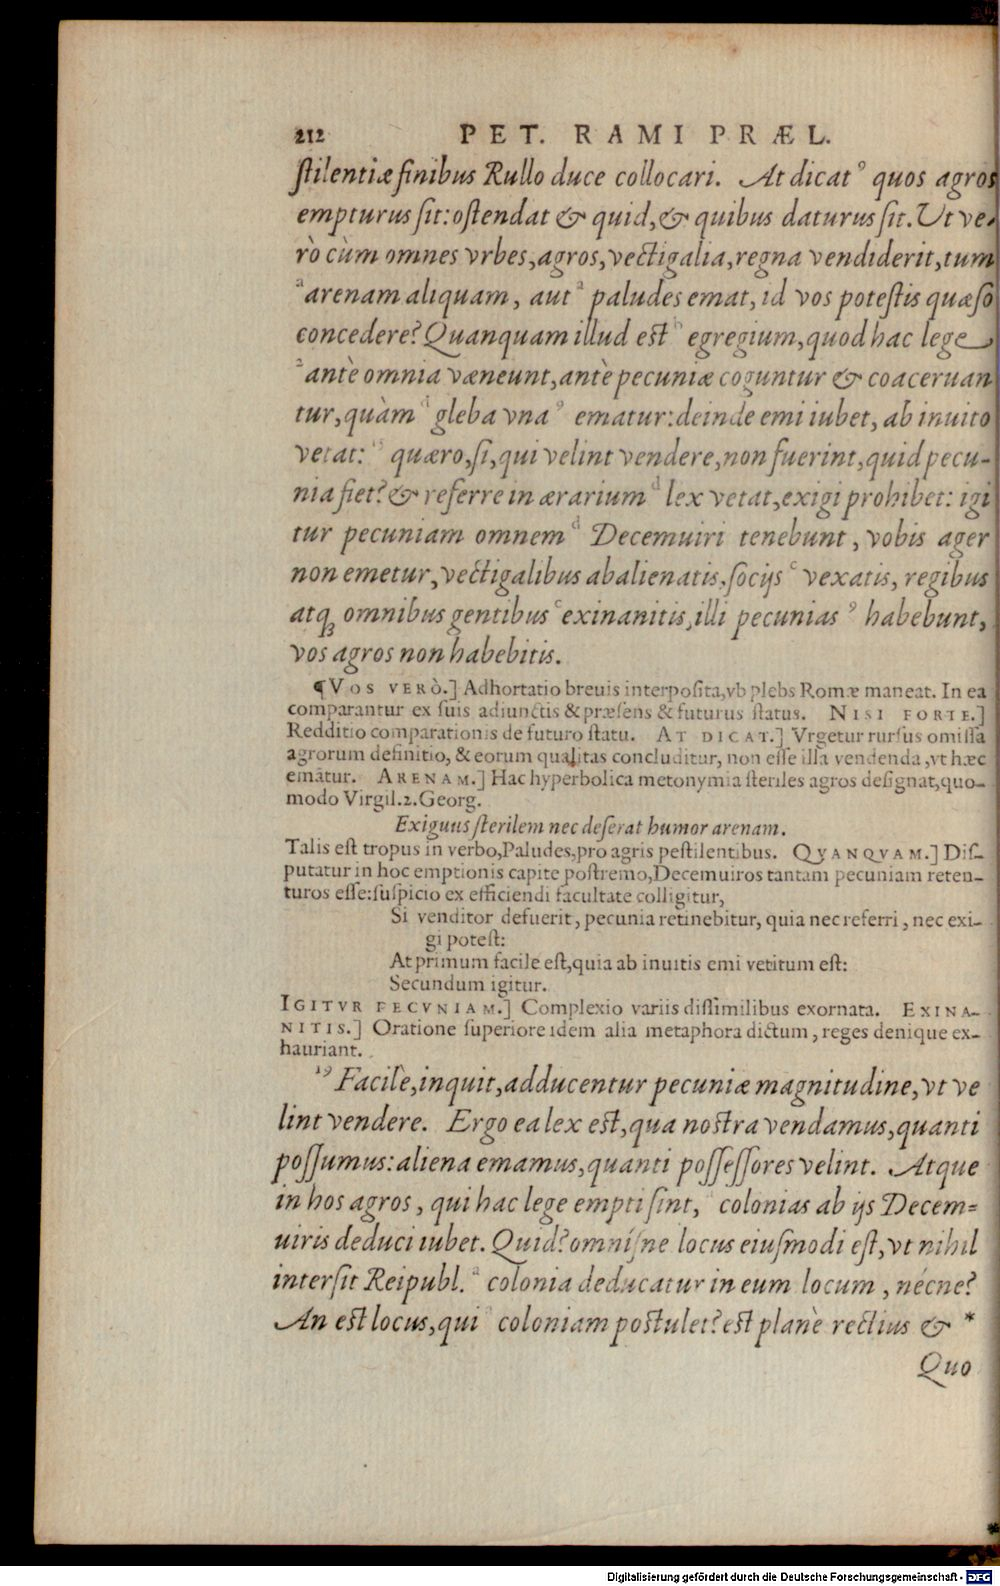 212 PET. RAMI PRÆL.
ſtilentiæ finibus Rullo duce collocari. At dicat ꝰ quos agros
empturus ſit: oſtendat & quid, & quibus daturus ſit. Ut ve-
rò cùm omnes vrbes, agros, vectigalia, regna vendiderit, tum
a arenam aliquam, aut a paludes emat, id vos poteſtis quæſo
concedere? Quanquam illud est b egregium, quod hac lege
2 antè omnia væneunt, antè pecuniæ coguntur & coaceruan
tur, quàm d gleba vna ꝰ ematur: deinde emi iubet, ab inuito
vetat: quæro, ſi, qui velint vendere, non fuerint, quid pecu-
nia fiet? & referre in ærarium d lex vetat, exigi prohibet: igi
tur pecuniam omnem d Decemuiri tenebunt, vobis ager
non emetur, vectigalibus abalienatis, ſocijs c vexatis, regibus
atqꝫ omnibus gentibus c exinanitis, illi pecunias ꝰ habebunt,
vos agros non habebitis.
¶VOS VERÒ.] Adhortatio breuis interpoſita, vb plebs Romæ maneat. In ea
comparantur ex ſuis adiunctis & præſens & futurus ſtatus. NISI FORTE.]
Redditio comparationis de futuro ſtatu. AT DICAT.] Vrgetur rurſus omiſſa
agrorum definitio, & eorum qualitas concluditur, non eſſe illa vendenda, vt hæc
emātur. ARENAM.] Hac hyperbolica metonymia ſteriles agros deſignat, quo-
modo Virgil. 2. Georg.
Exiguus ſterilem nec deſerat humor arenam.
Talis eſt tropus in verbo, Paludes, pro agris peſtilentibus. QVANQVAM.] Diſ-
putatur in hoc emptionis capite poſtremo, Decemuiros tantam pecuniam reten-
turos eſſe: ſuſpicio ex efficiendi facultate colligitur,
Si venditor defuerit, pecunia retinebitur, quia nec referri, nec exi-
gi poteſt:
At primum facile eſt, quia ab inuitis emi vetitum eſt:
Secundum igitur.
IGITVR PECVNIAM.] Complexio variis diſſimilibus exornata. EXINA-
NITIS.] Oratione ſuperiore idem alia metaphora dictum, reges denique ex-
hauriant.
19 Facilè, inquit, adducentur pecuniæ magnitudine, vt ve
lint vendere. Ergo ea lex est, qua nostra vendamus, quanti
poſſumus: aliena emamus, quanti poſſeſſores velint. Atque
in hos agros, qui hac lege empti ſint, a colonias ab ijs Decem=
uiris deduci iubet. Quid? omníſne locus eiuſmodi eſt, vt nihil
interſit Reipubl. a colonia deducatur in eum locum, nécne?
An est locus, qui a coloniam poſtulet? est planè rectius & *
Quo
Digitalisierung gefördert durch die Deutsche Forschungsgemeinschaft - DFG